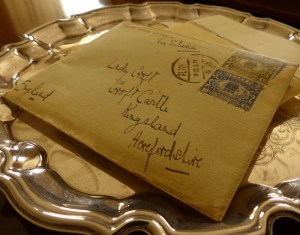 Via Siberia
Lady Croft
Croft Castle
Kingsland
Herefordshire
England